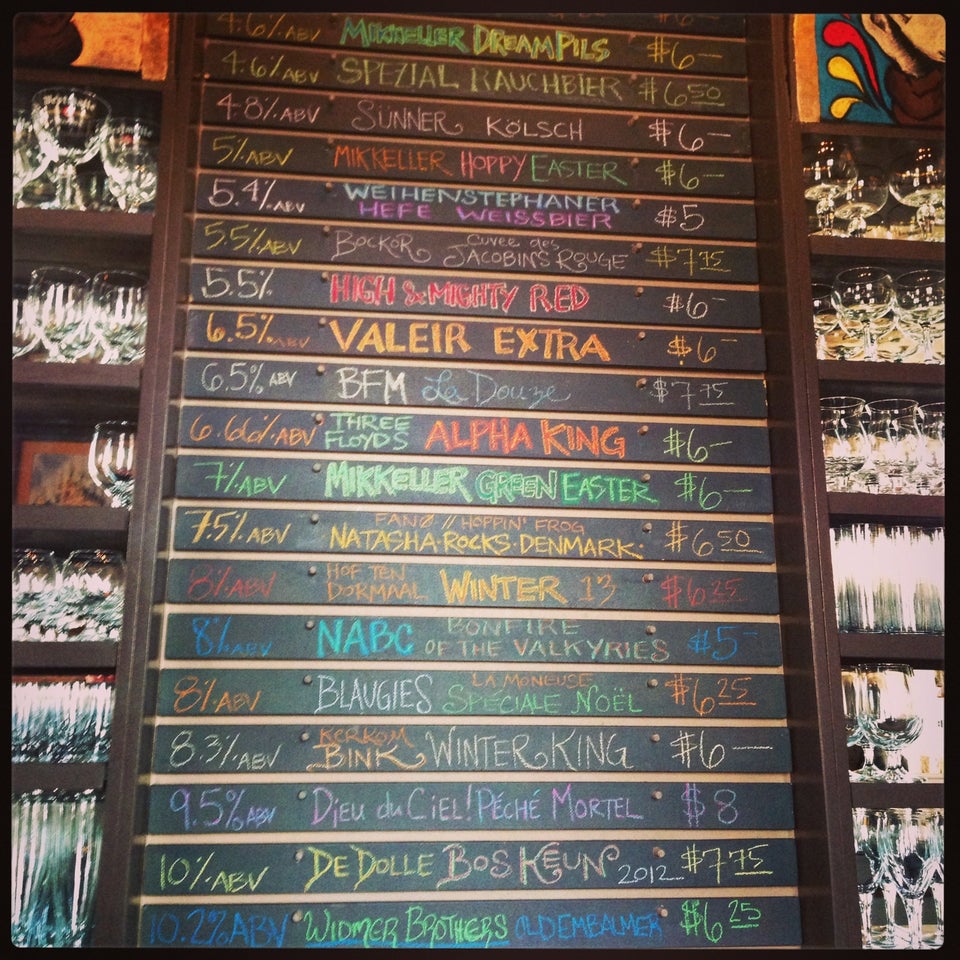 $6-
4.6% ABV MIKKELLER DREAM PILS $6-
4.6% ABV SPEZIAL RAUCHBIER $6.50
4.8% ABV SÜNNER KÖLSCH $6-
5% ABV MIKKELLER HOPPY EASTER $6-
5.4% ABV WEIHENSTEPHANER
HEFE WEISSBIER $5
5.5% ABV BOCKOR CUVEE des
JACOBINS ROUGE $7.75
5.5% HIGH & MIGHTY RED $6-
6.5% ABV VALEIR EXTRA $6-
6.5% ABV BFM La Douze $7.75
6.66% ABV THREE
FLOYDS ALPHA KING $6-
7% ABV MIKKELLER GREEN EASTER $6-
7.5% ABV FANØ // HOPPIN' FROG
NATASHA·ROCKS·DENMARK· $6.50
8% ABV HOF TEN
DORMAAL WINTER 13 $6.25
8% ABV NABC BONFIRE
OF THE VALKYRIES $5-
8% ABV BLAUGIES LA MONEUSE
SPÉCIALE NOËL $6.25
8.3% ABV KERKOM
BINK WINTER KING $6-
9.5% ABV DIEU du CIEL! PÉCHÉ MORTEL $8
10% ABV DE DOLLE BOS KEUN 2012 $7.75
10.2% ABV WIDMER BROTHERS OLD EMBALMER $6.25